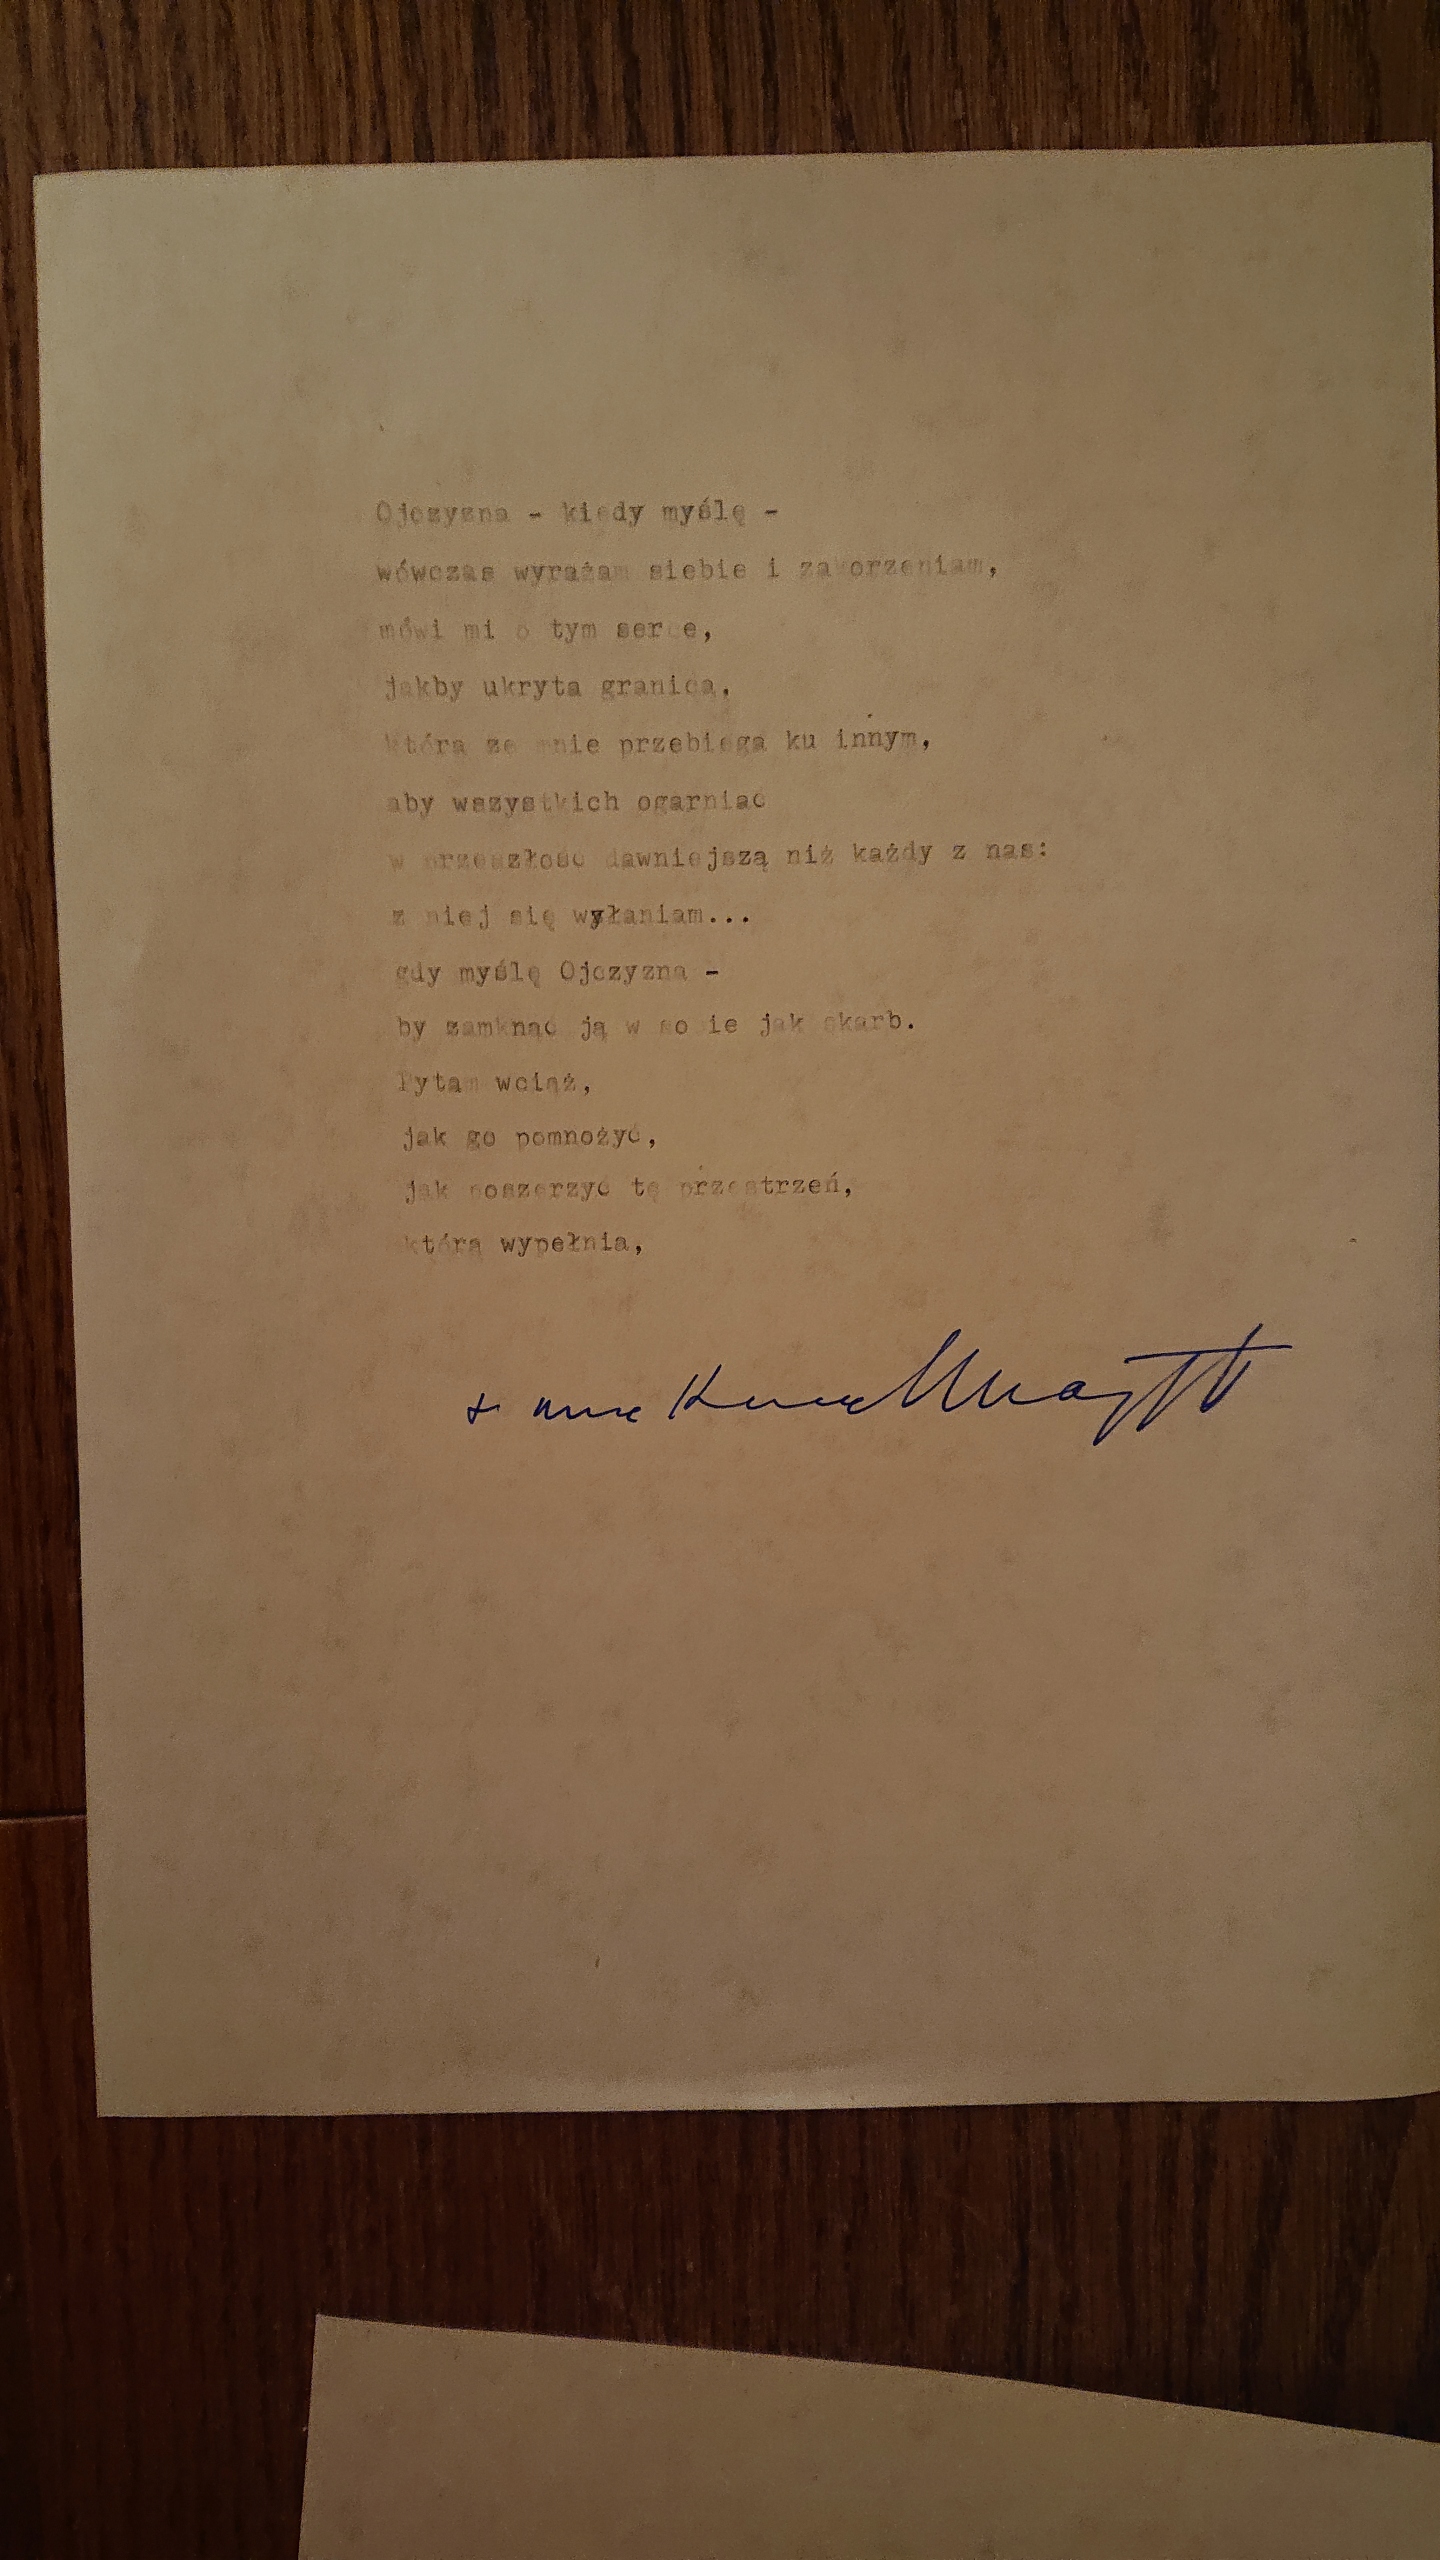 Ojczyzna - kiedy myślę -
wówczas wyrażam siebie i zakorzeniam,
mówi mi o tym serce,
jakby ukryta granica,
która ze mnie przebiega ku innym,
aby wszystkich ogarniać
w przeszłość dawniejszą niż każdy z nas:
z niej się wyłaniam...
gdy myślę Ojczyzna -
by zamknąć ją w sobie jak skarb.
Pytam wciąż,
jak go pomnożyć,
jak poszerzyć tę przestrzeń,
którą wypełnia,